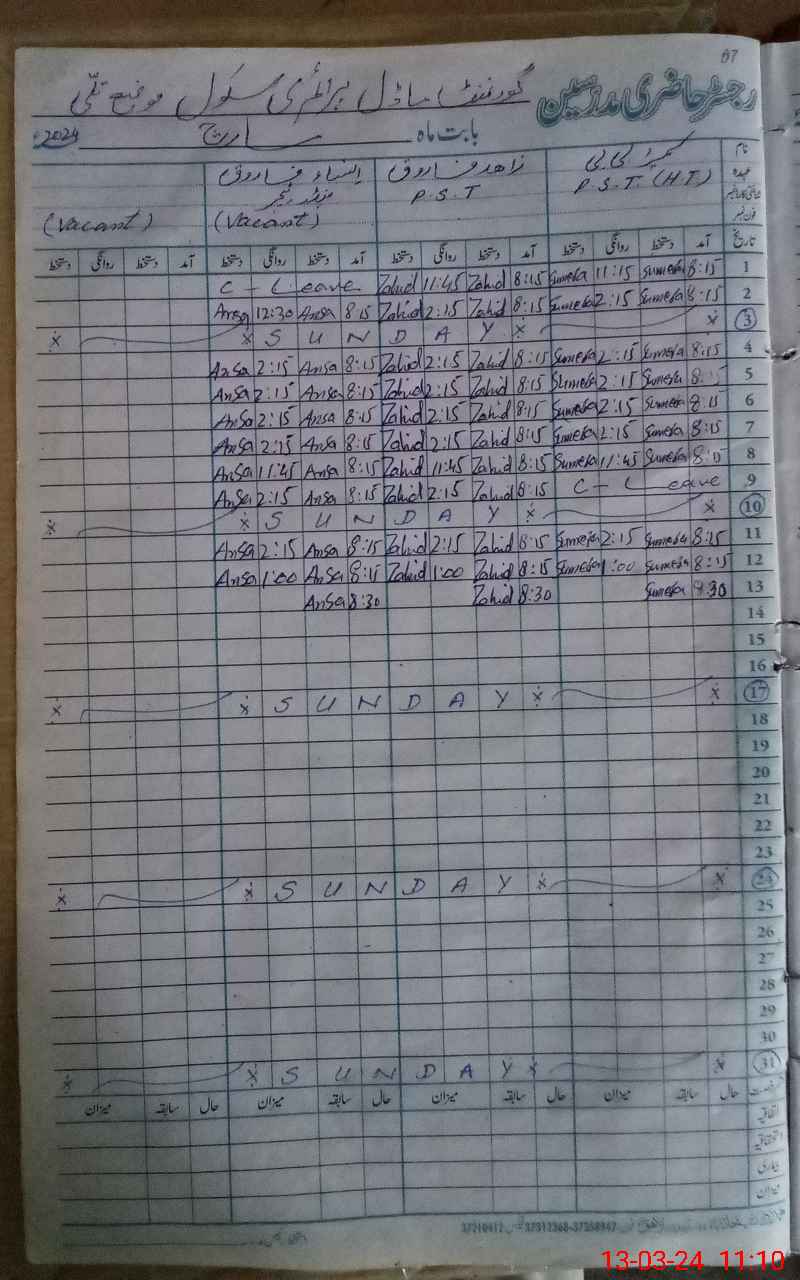 07
رجسٹر حاضری مدرسین گورنمنٹ ماڈل پرائمری سکول موضع
بابت ماہ مارچ 2024ء
نام
عہدہ P.S.T. (H.T) زاھد فاروق P.S.T فاروق (Vacant) (Vacant)
تاریخ آمد دستخط روانگی دستخط آمد دستخط روانگی دستخط آمد دستخط روانگی دستخط آمد دستخط روانگی دستخط
C - Leave Zahid 11:45 Zahid 8:15 Sumera 11:15 Sumera 8:15 1
Ansa 12:30 Ansa 8:15 Zahid 2:15 Zahid 8:15 Sumera 2:15 Sumera 8:15 2
S U N D A Y 3
Ansa 2:15 Ansa 8:15 Zahid 2:15 Zahid 8:15 Sumera 2:15 Sumera 8:15 4
Ansa 2:15 Ansa 8:15 Zahid 2:15 Zahid 8:15 Sumera 2:15 Sumera 8:15 5
Ansa 2:15 Ansa 8:15 Zahid 2:15 Zahid 8:15 Sumera 2:15 Sumera 8:15 6
Ansa 2:15 Ansa 8:15 Zahid 2:15 Zahid 8:15 Sumera 2:15 Sumera 8:15 7
Ansa 11:45 Ansa 8:15 Zahid 11:45 Zahid 8:15 Sumera 11:45 Sumera 8:15 8
Ansa 2:15 Ansa 8:15 Zahid 2:15 Zahid 8:15 C - Leave 9
S U N D A Y 10
Ansa 2:15 Ansa 8:15 Zahid 2:15 Zahid 8:15 Sumera 2:15 Sumera 8:15 11
Ansa 1:00 Ansa 8:15 Zahid 1:00 Zahid 8:15 Sumera 1:00 Sumera 8:15 12
Ansa 8:30 Zahid 8:30 Sumera 8:30 13
14
15
16
S U N D A Y 17
18
19
20
21
22
23
S U N D A Y 24
25
26
27
28
29
30
S U N D A Y 31
رخصت حال سابقہ میزان حال سابقہ میزان حال سابقہ میزان حال سابقہ میزان
اتفاقیہ
استحقاقیہ
بیماری
میزان
37210412 37312368-37358947
13-03-24 11:10